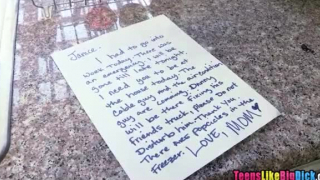 Janice,
I had to go into
work today. There was
an emergency. I will be
gone till late tonight.
I need you to be at
the house today. The
cable guy and the air condition
guy are coming. Danny
will be there fixing his
friends truck, please do not
disturb him. Thank you
There are popsicles in the
freezer. LOVE, MOM
TeensLikeBigDick.c